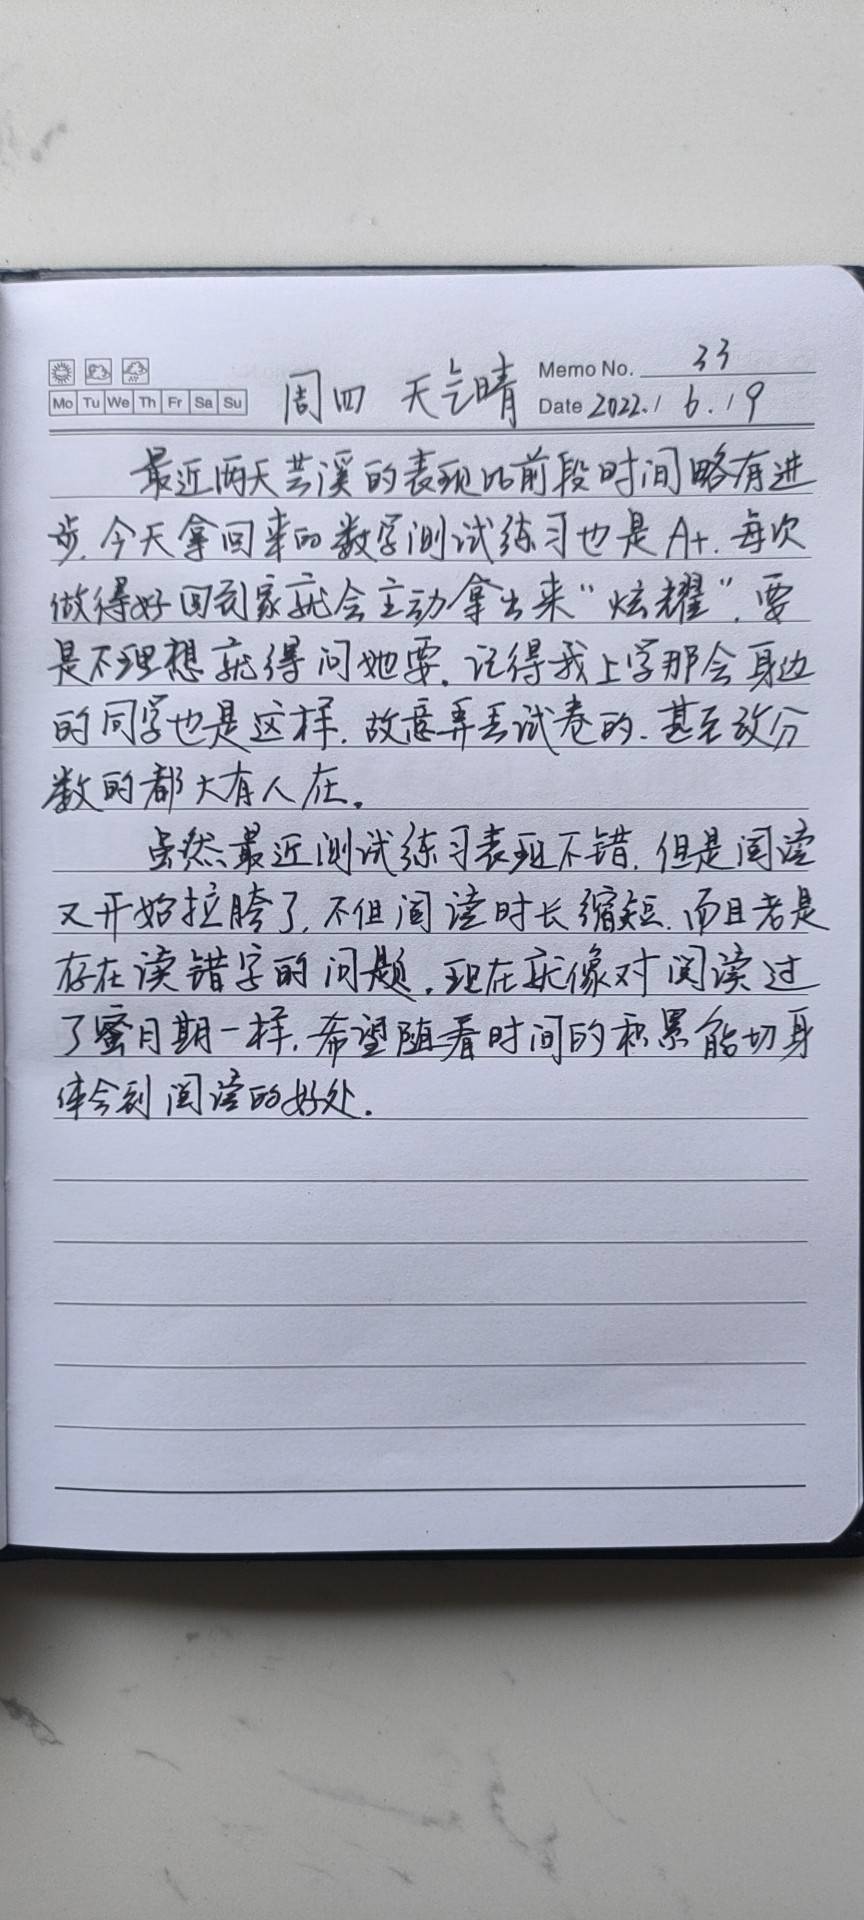 Memo No. 33
Mo Tu We Th Fr Sa Su
周四 天气晴
Date 2022.1 6.19
最近两天芸溪的表现比前段时间略有进
步,今天拿回来的数学测试练习也是A+.每次
做得好回到家就会主动拿出来“炫耀”,要
是不理想就得问她要。记得我上学那会身边
的同学也是这样,故意弄丢试卷的、甚至改分
数的都大有人在。
虽然最近测试练习表现不错,但是阅读
又开始拉胯了,不但阅读时长缩短,而且老是
存在读错字的问题,现在就像对阅读过
了蜜月期一样,希望随着时间的积累能切身
体会到阅读的好处。